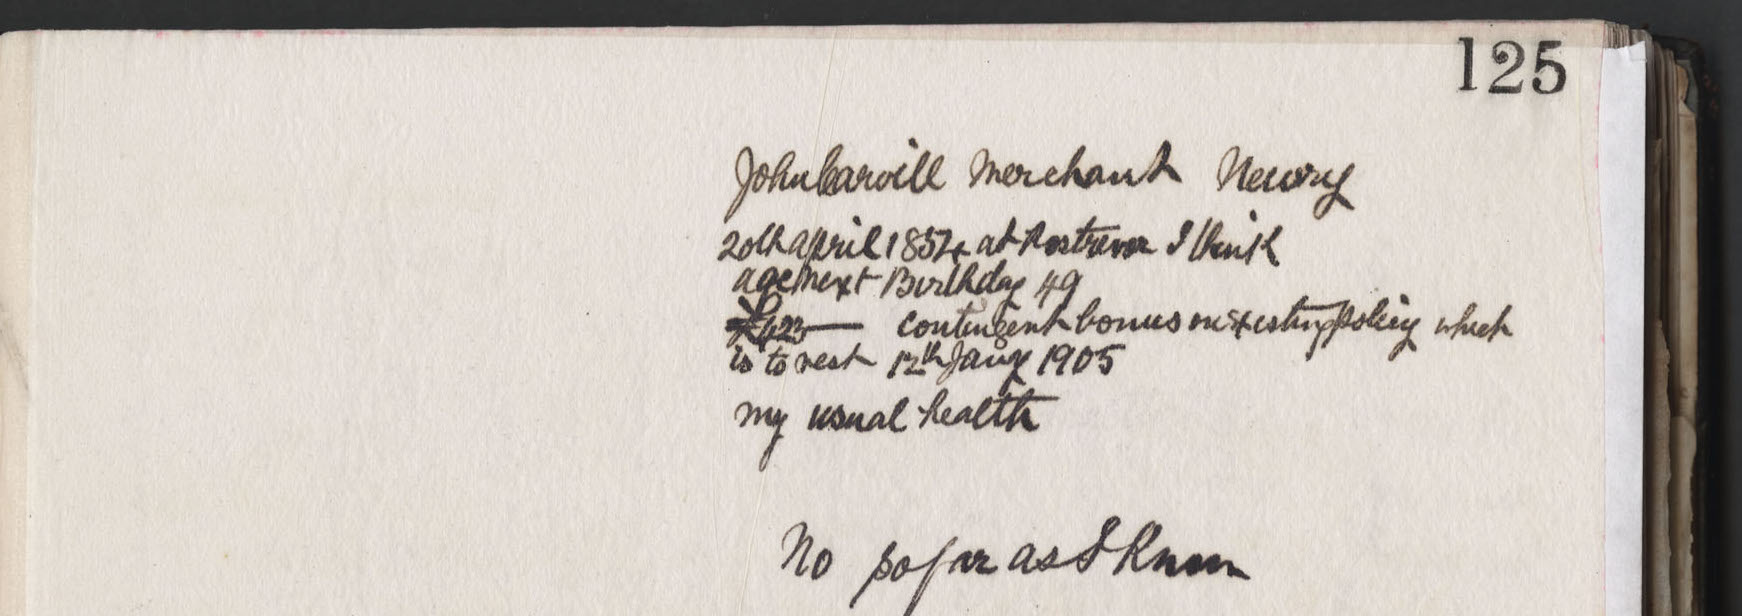 125
John Carvill Merchant Newry
20th April 1854 at Rostrevor I think
age next Birthday 49
£423 contingent bonus on existing policy which
is to vest 12th Jany 1905
my usual health
No so far as I Know